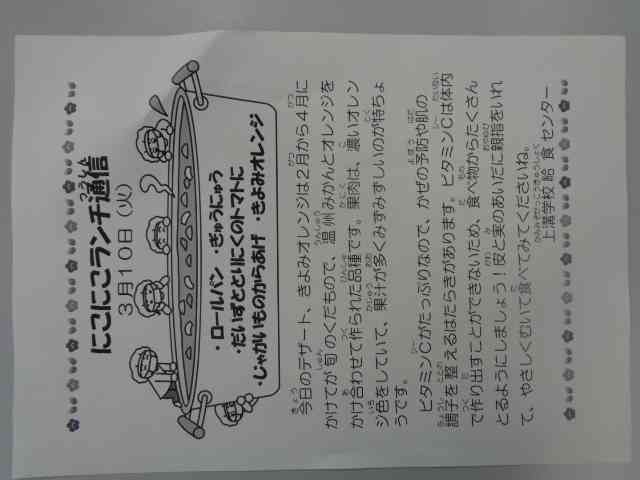 にこにこランチ通信
3月10日（火）
・ロールパン ・ぎゅうにゅう
・だいずととりにくのトマトに
・じゃがいものからあげ ・きよみオレンジ
今日のデザート、きよみオレンジは2月から4月に
かけてが旬のくだもので、温州みかんとオレンジを
かけ合わせて作られた品種です。果肉は、濃いオレン
ジ色をしていて、果汁が多くみずみずしいのが特ちょ
うです。
ビタミンCがたっぷりなので、かぜの予防や肌の
調子を整えるはたらきがあります。ビタミンCは体内
で作り出すことができないため、食べ物からたくさん
とるようにしましょう！皮と実のあいだに親指をいれ
て、やさしくむいて食べてみてくださいね。
上溝学校給食センター